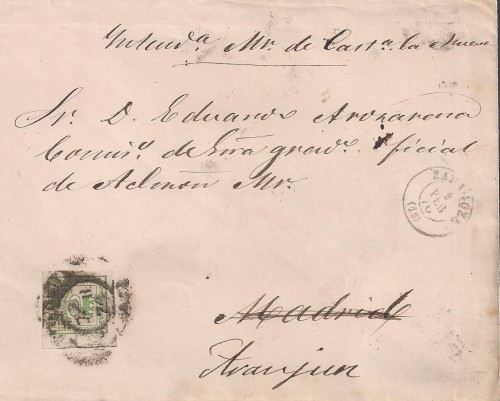 Intend.ª Mr. de Cast.ª la Nueva
Sr. D. Eduardo Arozarena
Comis.º de Grra grad.º Oficial
de Admón Mr.
ZARAGOZA
2
FEB
70
(15)
Madrid
Aranjuez